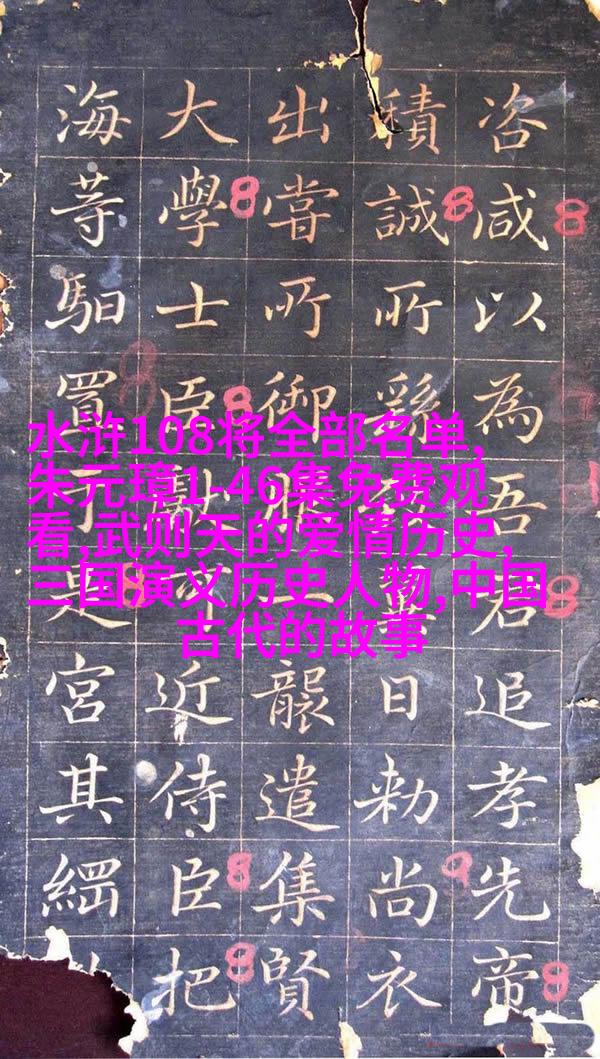 咨咸以為吾君追孝先帝
積誠所繇日勑尚衣
出嘗所御服一襲遣集賢
大學士臣獻可近侍臣把
海䓁馹置于是宮其綱
水浒108将全部名单,
朱元璋1-46集免费观
看,武则天的爱情历史,
三国演义历史人物,中国
古代的故事